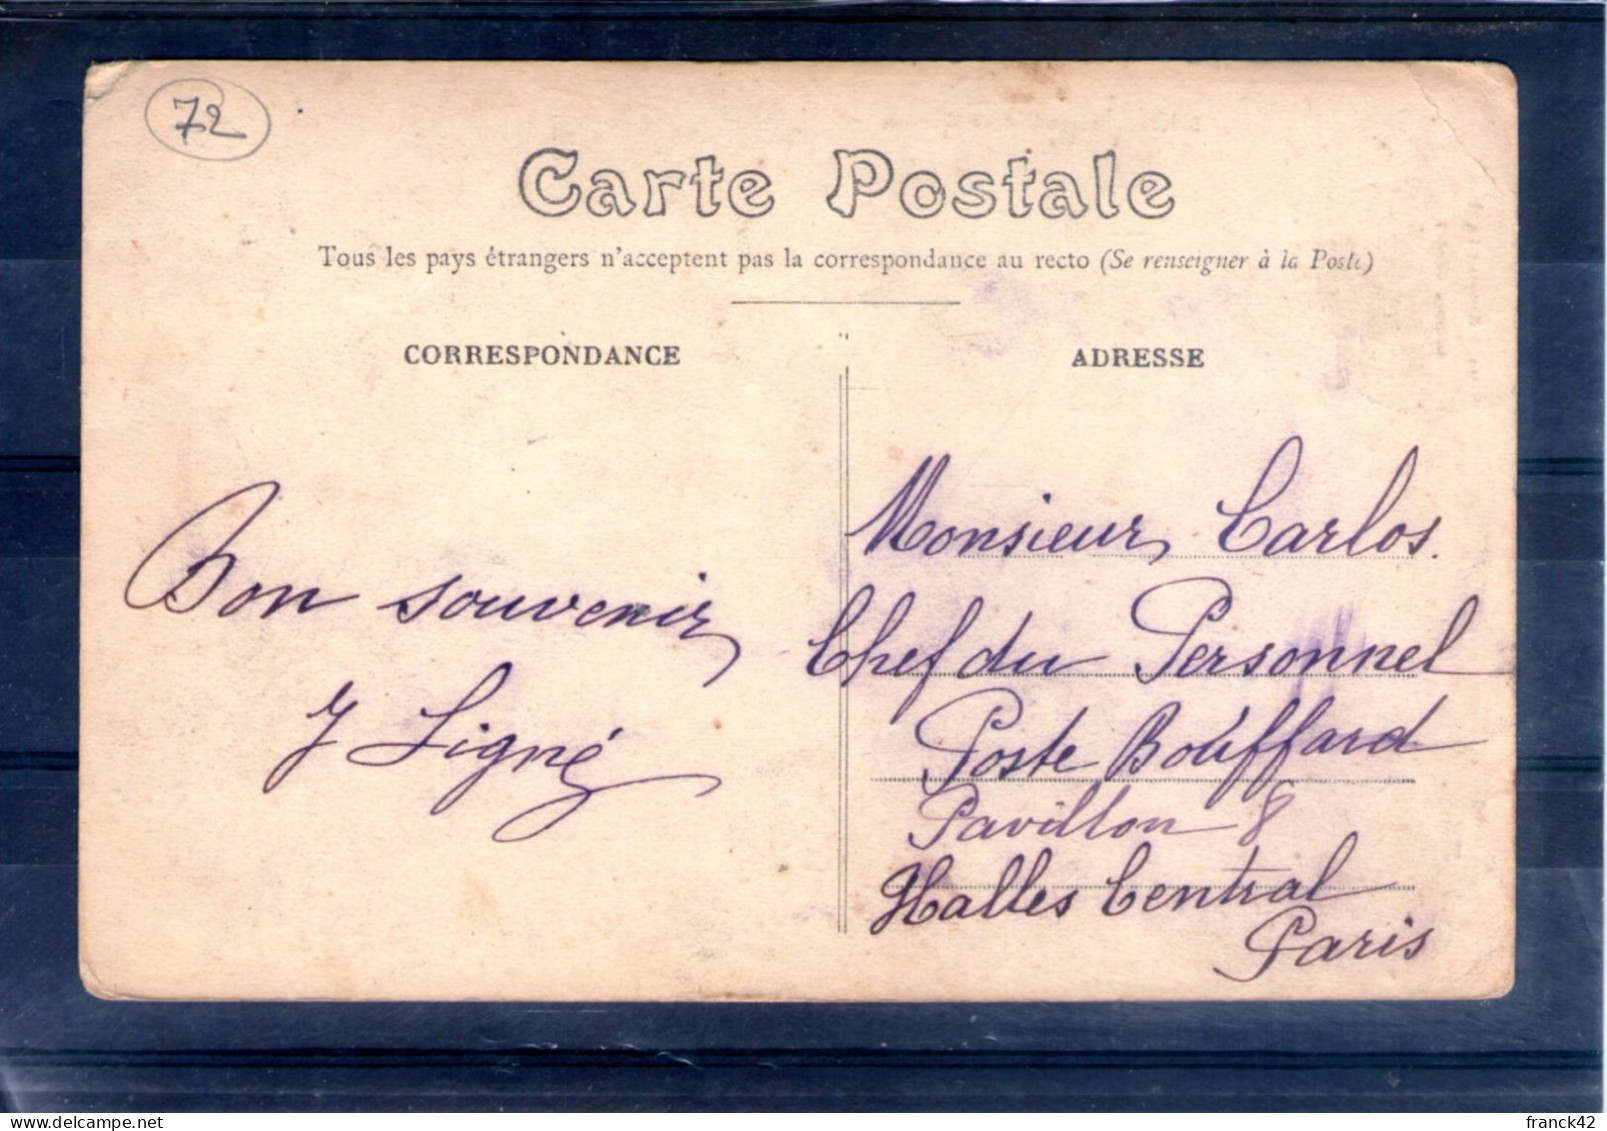 72
Carte Postale
Tous les pays étrangers n'acceptent pas la correspondance au recto (Se renseigner à la Poste)
CORRESPONDANCE
Bon souvenir
J Ligné
ADRESSE
Monsieur Carlos.
Chef du Personnel
Poste Bouffard
Pavillon 8
Halles Central
Paris
franck42